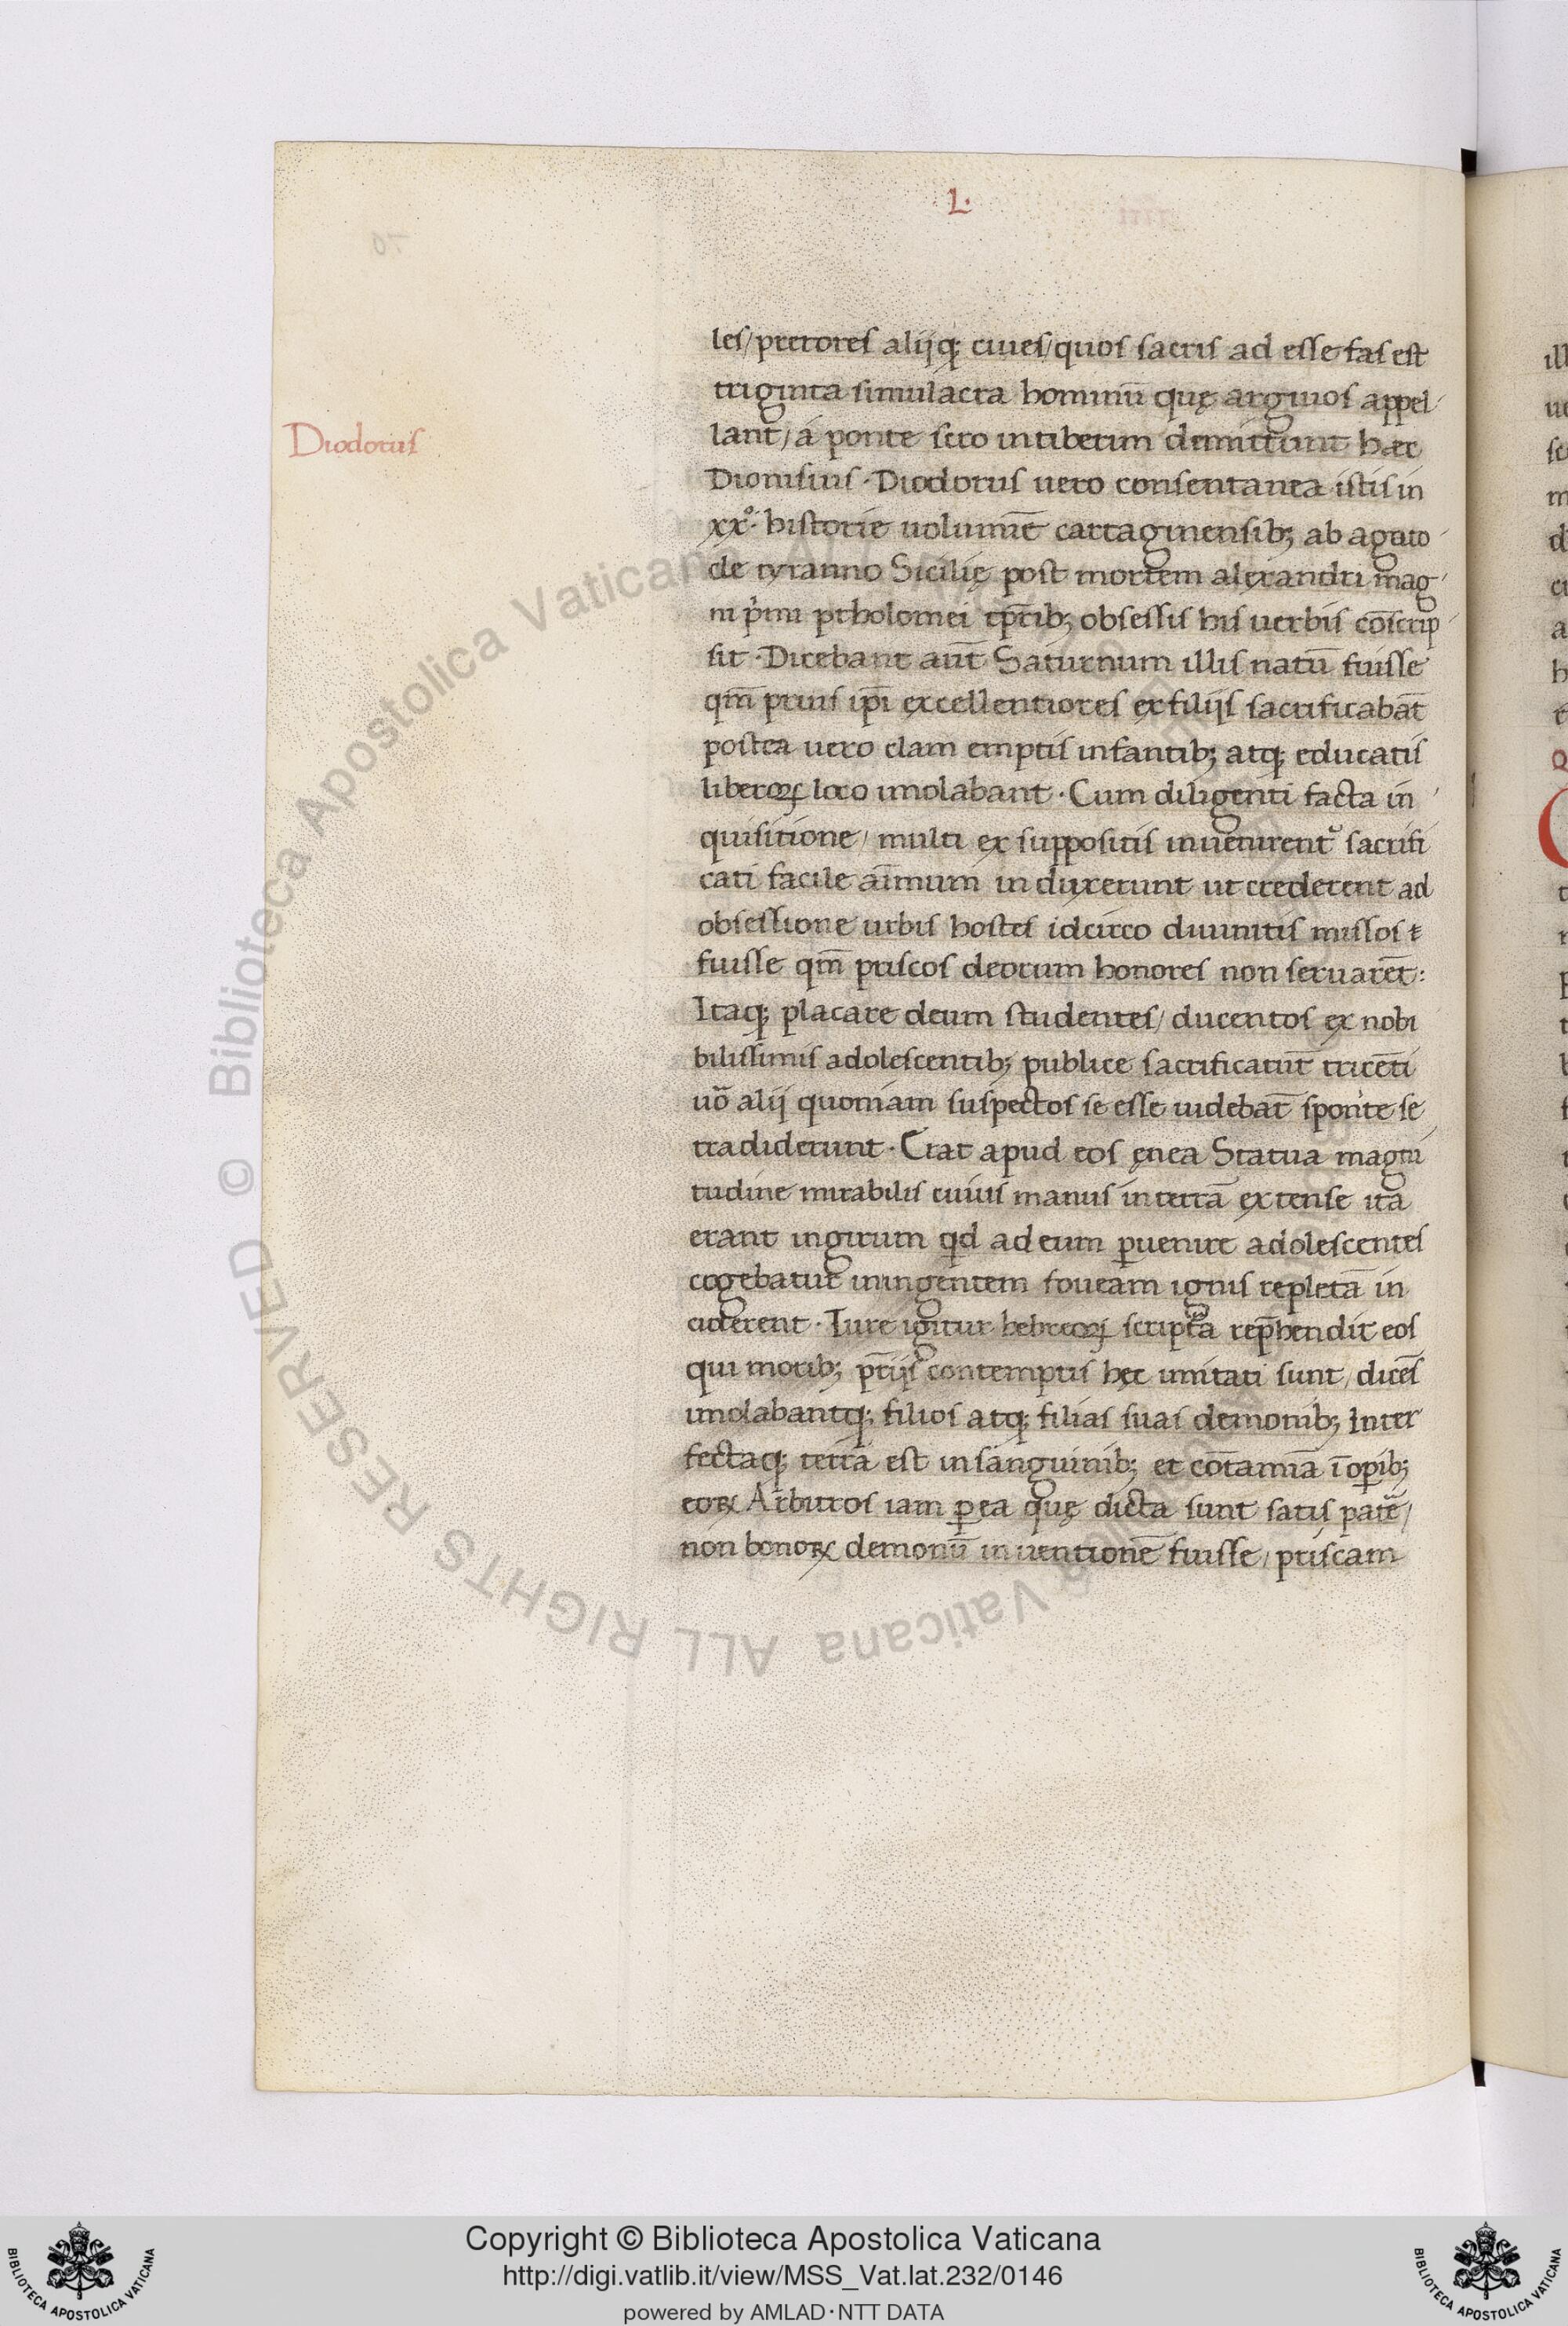 L·
Diodorus
les/pretores alijq; ciues/quos sacris ad esse fas est
triginta simulacra hominū quę argiuos appel
lant/á ponte scro in tiberim demittunt hæc
Dionisius·Diodorus uero consentanea istis in
xxº· historie uolumīe cartaginensib; ab agato
cle tyranno Sicilię post mortem alexandri mag
ni pimi ptholomei tp̄rib; obsessis his uerbis cōscrip
sit·Dicebant aūt Saturnum illis natū fuisse
qm̄ prius ip̄i excellentiores ex filijs sacrificabāt
postea uero clam emptis infantib; atq; educatis
liberoꝝ loco imolabant·Cum diligenti facta in
quisitione/multi ex suppositis inuenirent᷑ sacrifi
cati facile aīmum in duxerunt ut crederent ad
obsessione urbis hostes idcirco diuinitis missos
fuisse qm̄ priscos deorum honores non seruarēt:
Itaq; placare deum studentes/ducentos ex nobi
bilissimis adolescentib; publice sacrificarūt tricēti
uō alij quoniam suspectos se esse uidebāt sponte se
tradiderunt·Erat apud eos ęnea Statua magni
tudine mirabilis cuius manus in terrā extense ita
erant in girum qd ad eum ꝑuenire adolescentes
cogebatur in ingentem foueam ignis repletā in
ciderent·Iure igitur hebreoꝝ scriptā rep̄hendit eos
qui morib; pr̄ijs contemptis hęc imitati sunt/dicēs
imolabantq; filios atq; filias suas demonib; Inter
fectaq; terra est in sanguinib; et cōtamīa ī opib;
eoꝝ Arbitros iam ꝑ ea quę dicta sunt satis patē/
non bonoꝝ demonū in uentionē fuisse/priscam
Copyright © Biblioteca Apostolica Vaticana
http://digi.vatlib.it/view/MSS_Vat.lat.232/0146
powered by AMLAD·NTT DATA
BIBLIOTECA APOSTOLICA VATICANA
BIBLIOTECA APOSTOLICA VATICANA
© Biblioteca Apostolica Vaticana ALL RIGHTS RESERVED